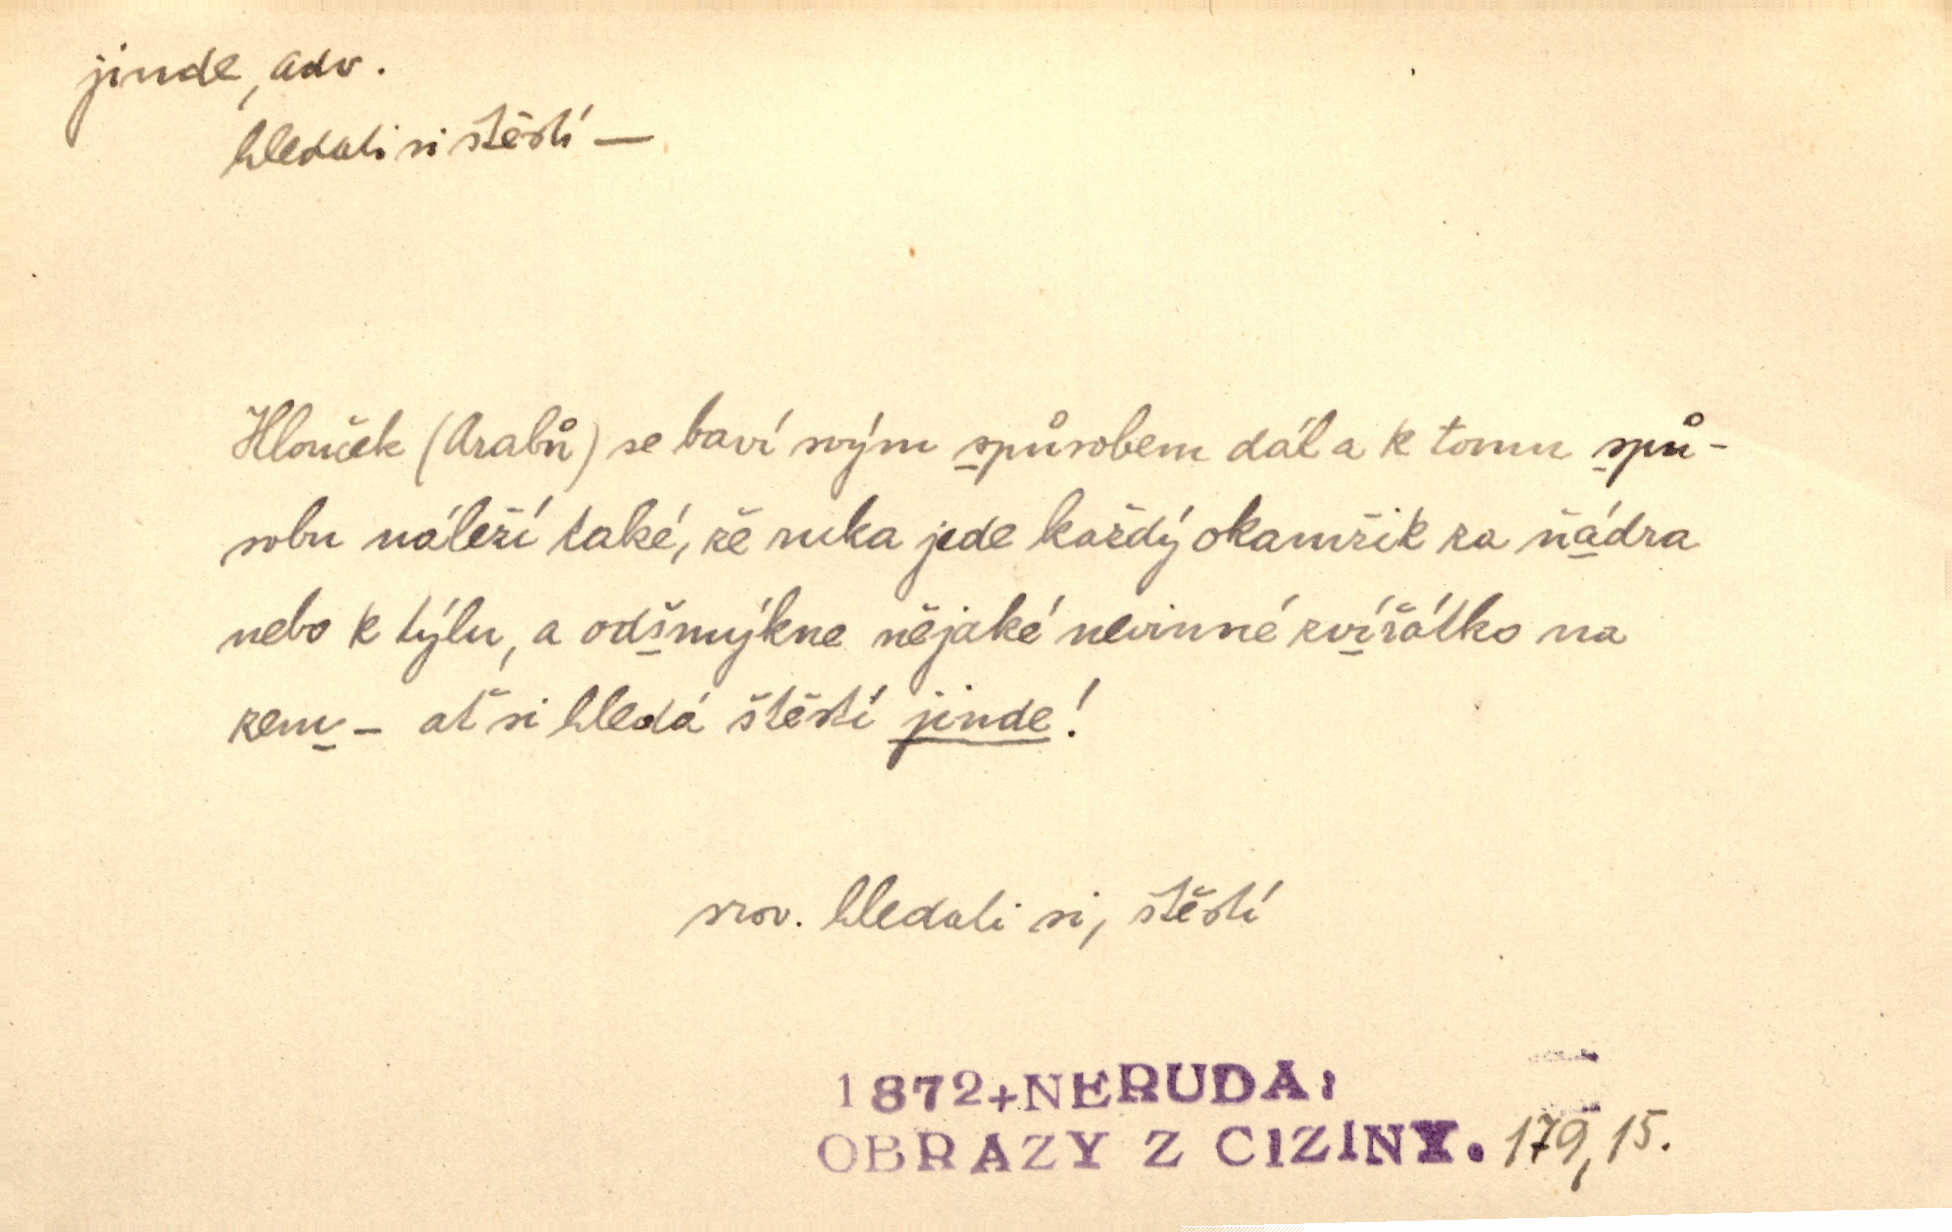 jinde, adv.
hledati si štěstí —
Hlouček (Arabů) se baví svým spůsobem dál a k tomu spů-
sobu náleží také, že ruka jede každý okamžik za ňádra
nebo k týlu, a odšmýkne nějaké nevinné zvířátko na
zem – ať si hledá štěstí jinde!
srov. hledati si, štěstí
1872+NERUDA:
OBRAZY Z CIZINY. 179, 15.